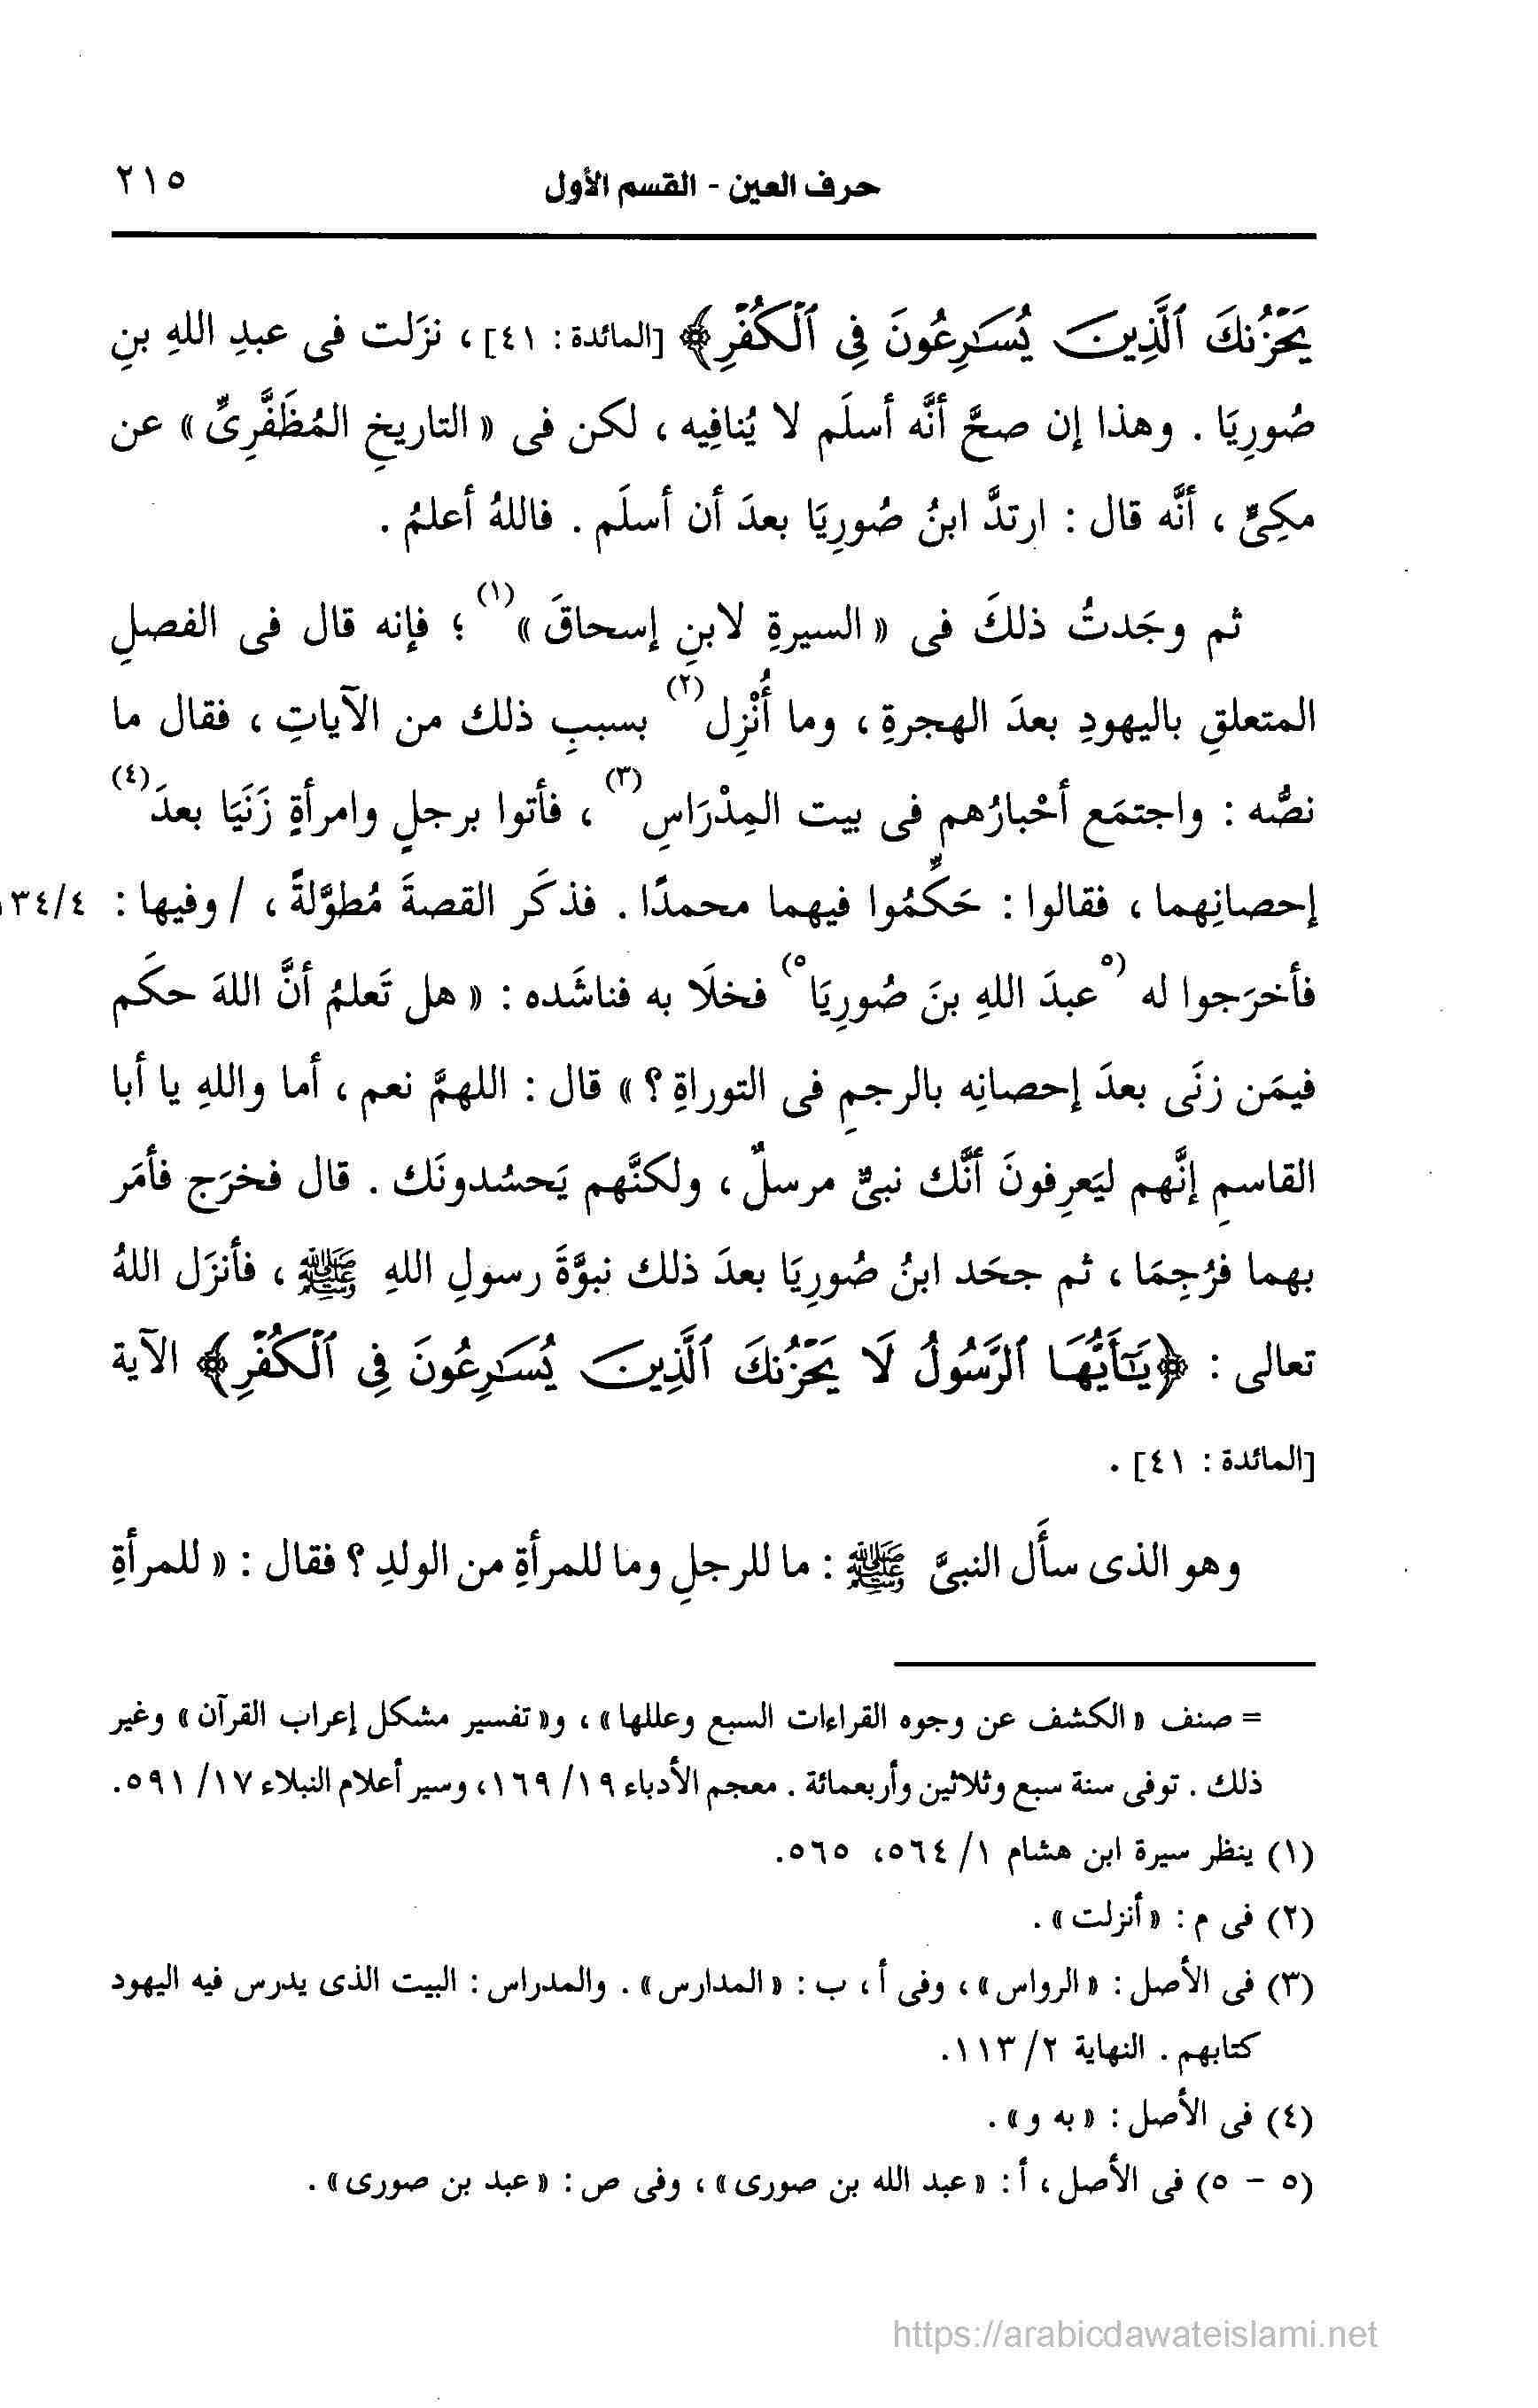 حرف العين - القسم الأول ٢١٥
يَحْزُنكَ ٱلَّذِينَ يُسَـٰرِعُونَ فِى ٱلْكُفْرِ﴾ [المائدة: ٤١]، نزَلت فى عبدِ اللهِ بنِ
صُورِيَا . وهذا إن صحَّ أنَّه أسلَم لا يُنافِيه ، لكن فى « التاريخِ المُظَفَّرِىِّ » عن
مكِىٍّ ، أنَّه قال : ارتدَّ ابنُ صُورِيَا بعدَ أن أسلَم . فاللهُ أعلمُ .
ثم وجَدتُ ذلكَ فى « السيرةِ لابنِ إسحاقَ »(١) ؛ فإنه قال فى الفصلِ
المتعلقِ باليهودِ بعدَ الهجرةِ ، وما أُنْزِل(٢) بسببِ ذلك من الآياتِ ، فقال ما
نصُّه : واجتمَع أحْبارُهم فى بيت المِدْرَاسِ(٣) ، فأتوا برجلٍ وامرأةٍ زَنَيَا بعدَ(٤)
إحصانِهما ، فقالوا : حَكِّمُوا فيهما محمدًا . فذكَر القصةَ مُطوَّلةً ، / وفيها : ١٣٤/٤
فأخرَجوا له (٥عبدَ اللهِ بنَ صُورِيَا٥) فخلَا به فناشَده : « هل تَعلمُ أنَّ اللهَ حكَم
فيمَن زنَى بعدَ إحصانِه بالرجمِ فى التوراةِ ؟ » قال : اللهمَّ نعم ، أما واللهِ يا أبا
القاسمِ إنَّهم ليَعرِفونَ أنَّك نبىٌّ مرسلٌ ، ولكنَّهم يَحسُدونَك . قال فخرَج فأمَر
بهما فرُجِمَا ، ثم جحَد ابنُ صُورِيَا بعدَ ذلك نبوَّةَ رسولِ اللهِ ﷺ ، فأنزَل اللهُ
تعالى : ﴿يَـٰٓأَيُّهَا ٱلرَّسُولُ لَا يَحْزُنكَ ٱلَّذِينَ يُسَـٰرِعُونَ فِى ٱلْكُفْرِ﴾ الآية
[المائدة : ٤١] .
وهو الذى سأَل النبىَّ ﷺ : ما للرجلِ وما للمرأةِ من الولدِ ؟ فقال : « للمرأةِ
= صنف « الكشف عن وجوه القراءات السبع وعللها » ، و« تفسير مشكل إعراب القرآن » وغير
ذلك . توفى سنة سبع وثلاثين وأربعمائة . معجم الأدباء ١٩/ ١٦٩، وسير أعلام النبلاء ١٧/ ٥٩١.
(١) ينظر سيرة ابن هشام ١/ ٥٦٤، ٥٦٥.
(٢) فى م : « أنزلت » .
(٣) فى الأصل : « الرواس » ، وفى أ ، ب : « المدارس » . والمدراس : البيت الذى يدرس فيه اليهود
كتابهم . النهاية ٢/ ١١٣.
(٤) فى الأصل : « به و » .
(٥ - ٥) فى الأصل ، أ : « عبد الله بن صورى » ، وفى ص : « عبد بن صورى » .
https://arabicdawateislami.net